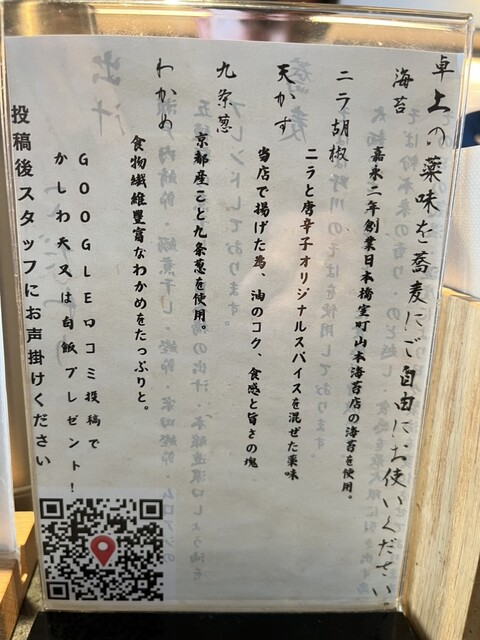 卓上の薬味を蕎麦にご自由にお使いください
海苔
嘉永二年創業日本橋室町山本海苔店の海苔を使用。
ニラ胡椒
ニラと唐辛子オリジナルスパイスを混ぜた薬味
天かす
当店で揚げた為、油のコク、食感と旨さの塊
九条葱
京都産こと九条葱を使用。
わかめ
食物繊維豊富なわかめをたっぷりと。
GOOGLE口コミ投稿で
かしわ天又は白飯プレゼント!
投稿後スタッフにお声掛けください